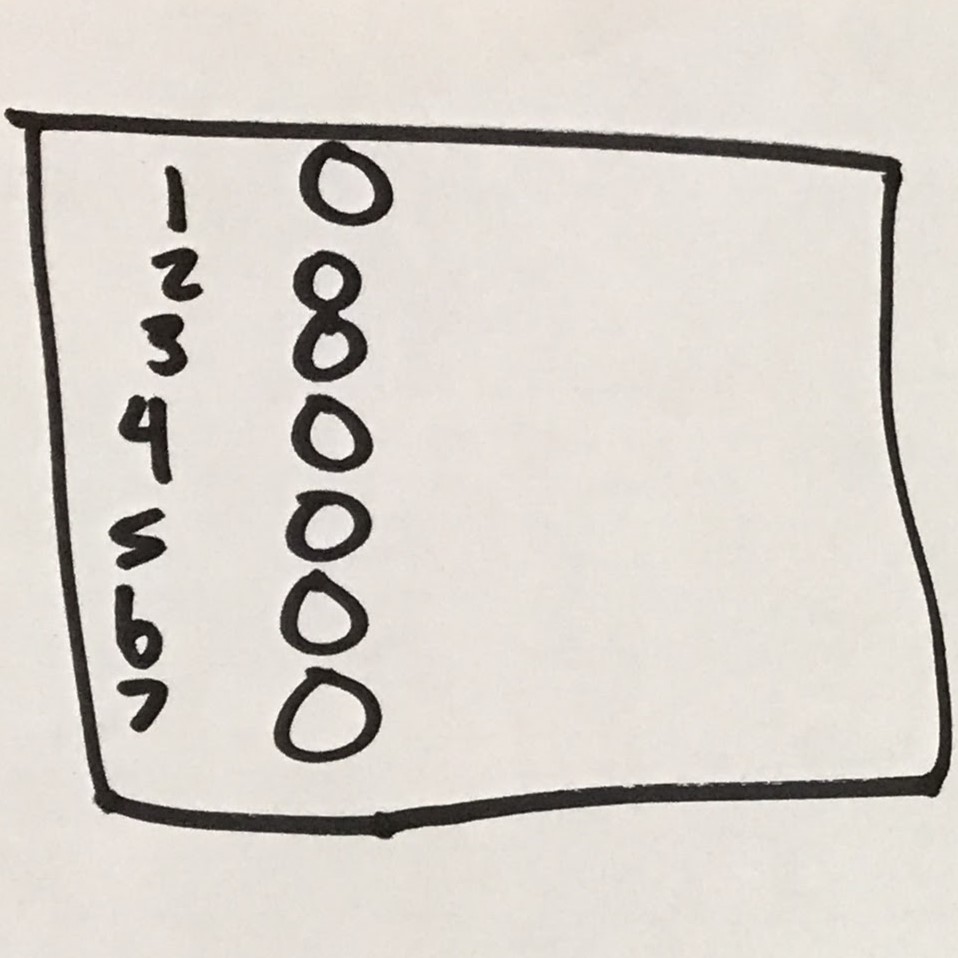 1 O
2 O
3 O
4 O
5 O
6 O
7 O